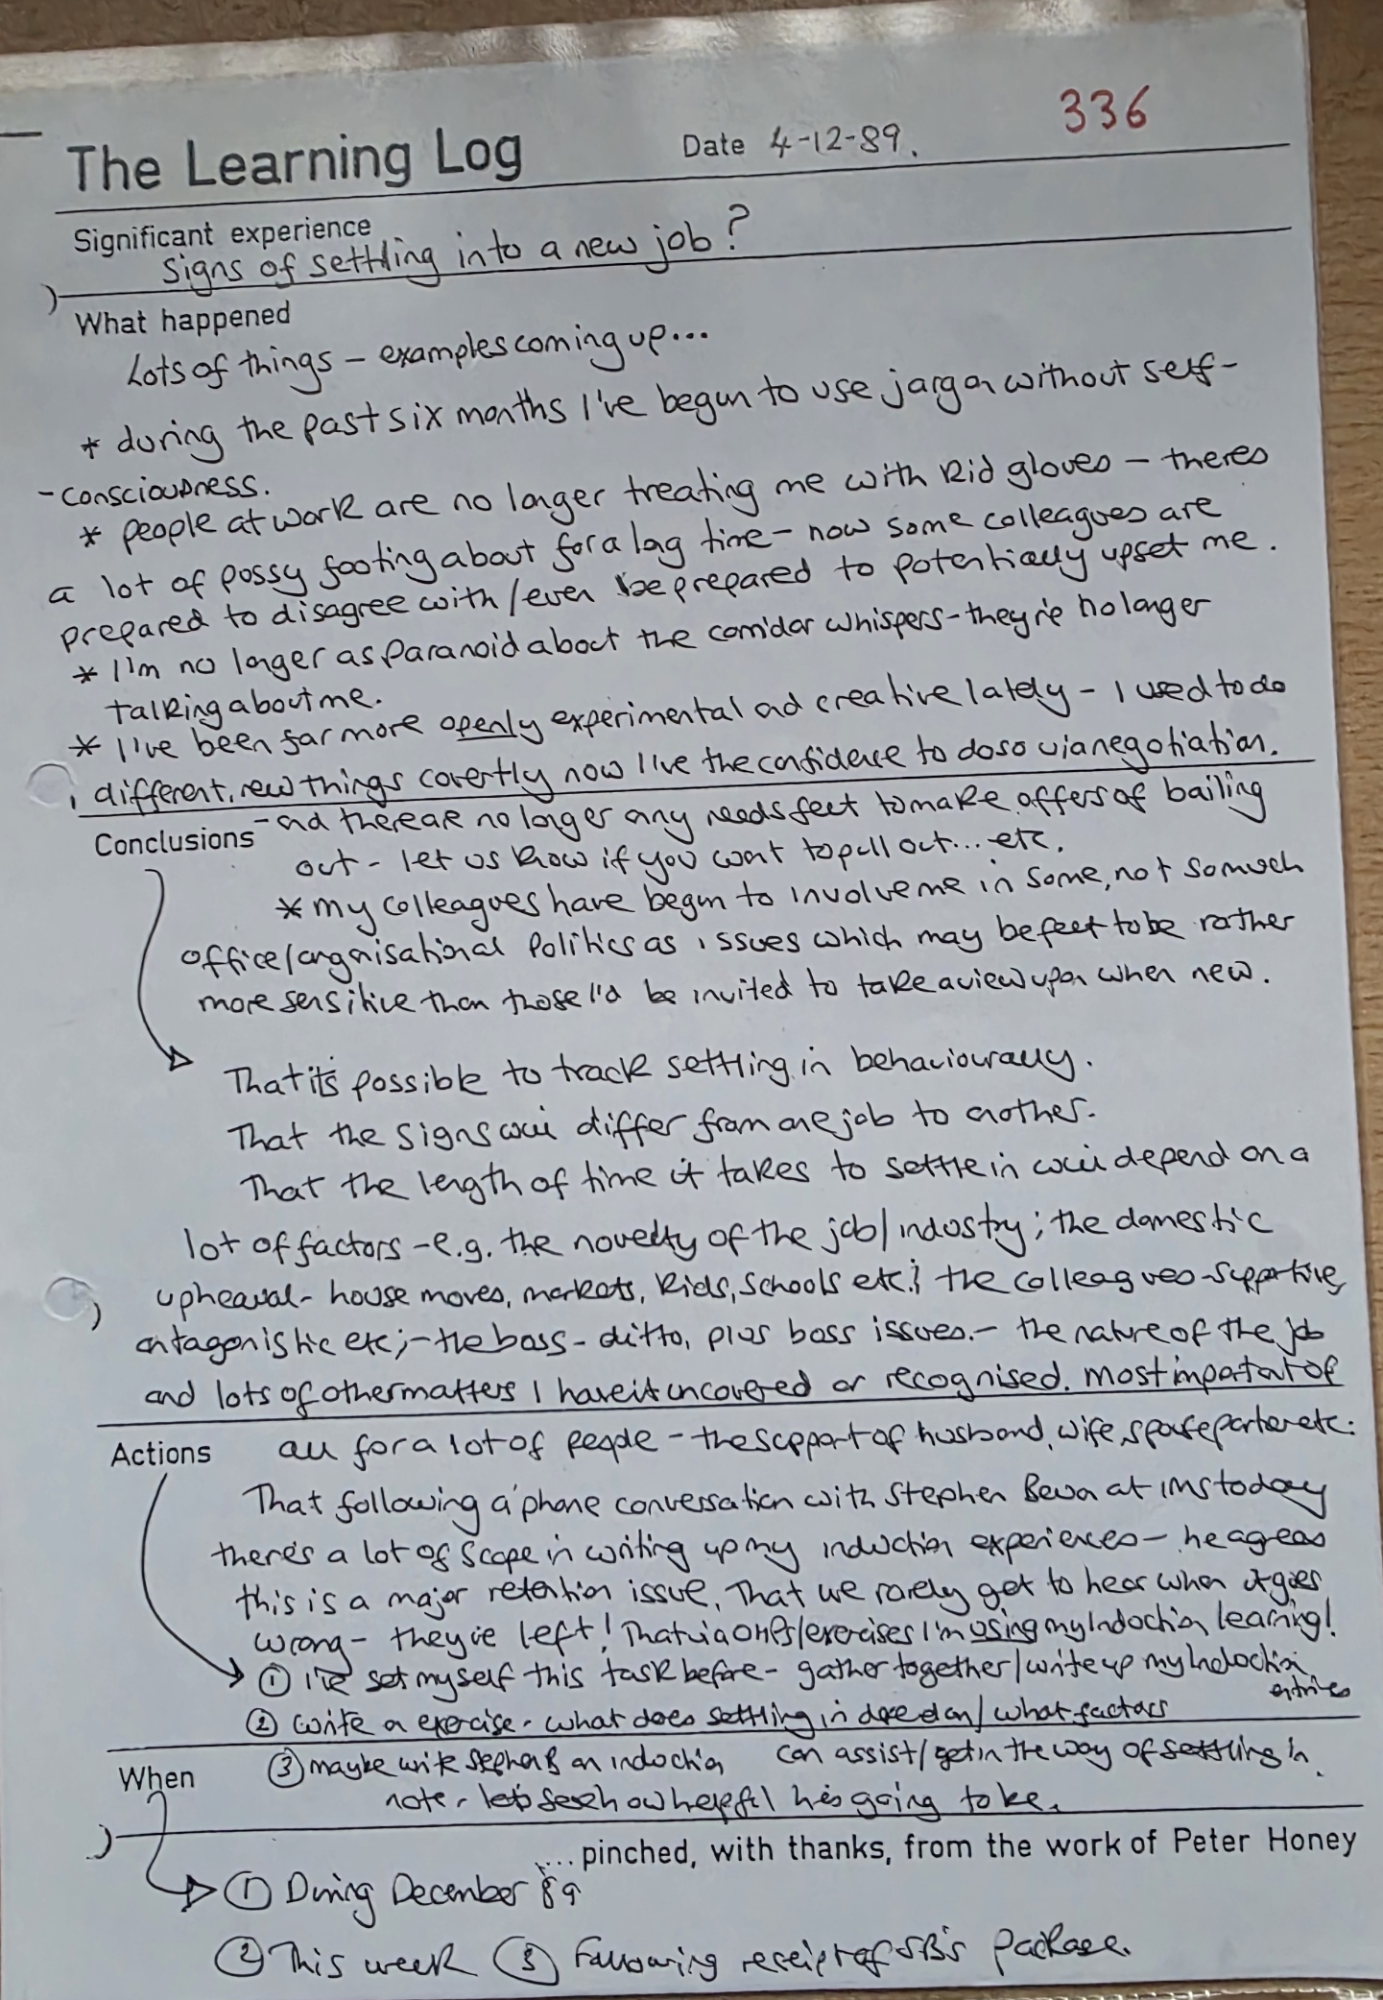 336
The Learning Log Date 4-12-89.
Significant experience
Signs of settling into a new job?
What happened
Lots of things - examples coming up...
* during the past six months I've begun to use jargon without self-
-consciousness.
* people at work are no longer treating me with kid gloves - theres
a lot of pussy footing about for a long time - now some colleagues are
prepared to disagree with/even be prepared to potentially upset me.
* I'm no longer as paranoid about the corridor whispers - they're no longer
talking about me.
* I've been far more openly experimental and creative lately - I used to do
different, new things covertly now I've the confidence to do so via negotiation.
Conclusions - and there are no longer any needs felt to make offers of bailing
out - let us know if you want to pull out... etc.
* my colleagues have begun to involve me in some, not so much
office/organisational politics as issues which may be felt to be rather
more sensitive than those I'd be invited to take a view upon when new.
That it's possible to track settling in behaviourally.
That the signs will differ from one job to another.
That the length of time it takes to settle in will depend on a
lot of factors - e.g. the novelty of the job/industry; the domestic
upheaval - house moves, markets, kids, schools etc.; the colleagues - supportive,
antagonistic etc; - the boss - ditto, plus boss issues. - the nature of the job
and lots of other matters I haven't uncovered or recognised. Most important of
Actions all for a lot of people - the support of husband, wife, spouse partner etc.
That following a 'phone conversation with Stephen at IMS today
there's a lot of scope in writing up my induction experiences - he agrees
this is a major retention issue, That we rarely get to hear when it goes
wrong - they've left! That via /exercises I'm using my Induction learning!
① I've set myself this task before - gather together/write up my Induction
entries
② write a exercise - what does settling in depend on/what factors
can assist/get in the way of settling in.
When ③ maybe write an induction
note - let's see how helpful he's going to be.
... pinched, with thanks, from the work of Peter Honey
① During December 89
② This week ③ Following receipt of SB's package.